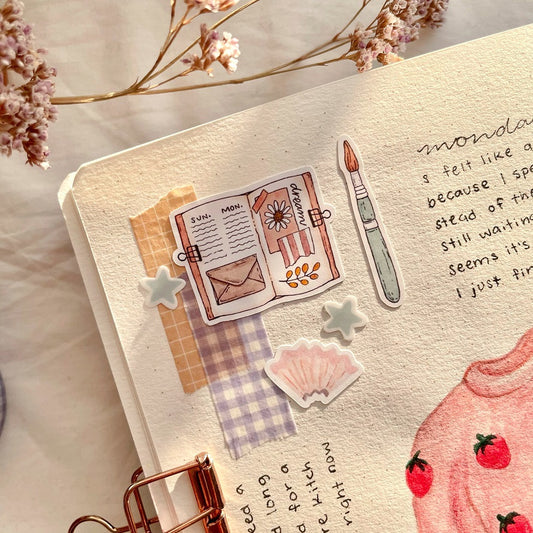 SUN. MON.
dream
monda
I felt like a
because I spe
stead of the
still waitin
seems it's
I just fin
eed a
d long
d for a
re kitch
right now